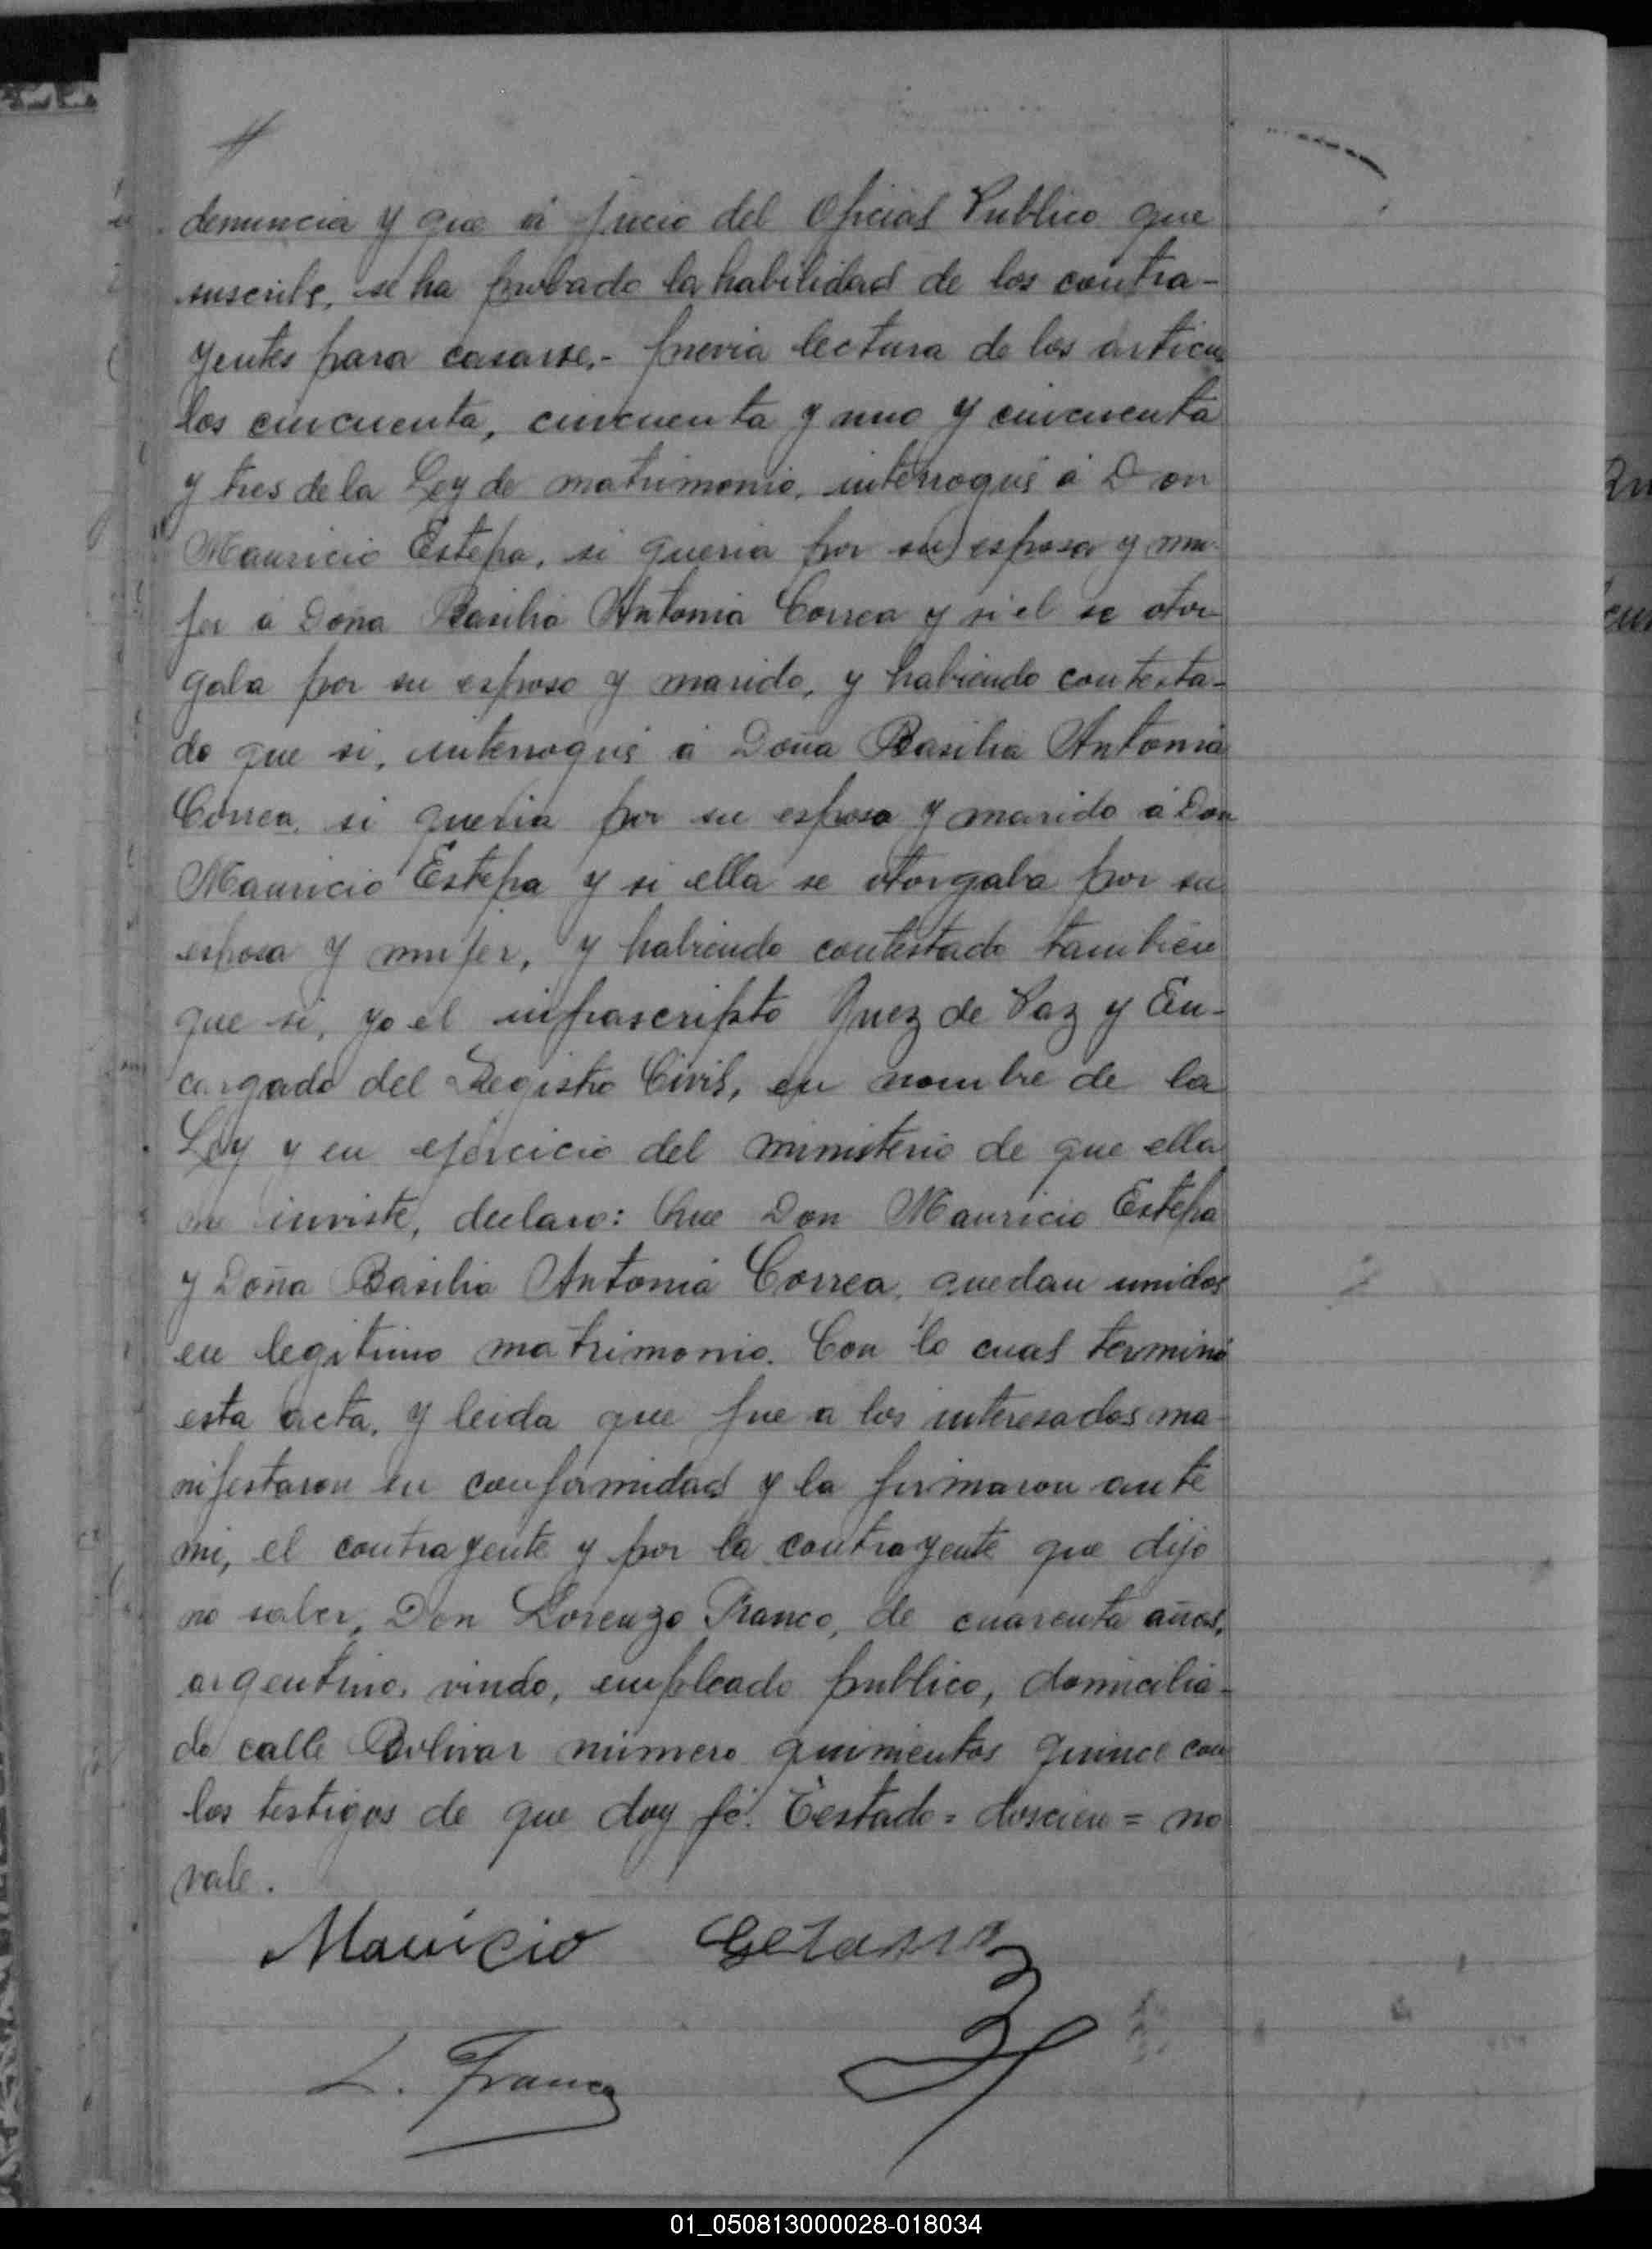 denuncia y que á jucio del Oficial Publico que
suscribe, se ha probado la habilidad de los contra-
yentes para casarse,- previa lectura de los articu
los cincuenta, cincuenta y uno y cincuenta
y tres de la Ley de matrimonio, interrogué á Don
Mauricio Estepa, si queria por su esposa y mu-
jer á Doña Basilia Antonia Correa y si el se otor-
gaba por su esposo y marido, y habiendo contesta-
do que si, interrogué á Doña Basilia Antonia
Correa, si queria por su esposo y marido á Don
Mauricio Estepa y si ella se otorgaba por su
esposa y mujer, y habiendo contestado tambien
que si, yo el infrascripto Juez de Paz y En-
cargado del Registro Civil, en nombre de la
Ley y en ejercicio del ministerio de que ella
me inviste, declaro: Que Don Mauricio Estepa
y Doña Basilia Antonia Correa, quedan unidos
en legitimo matrimonio. Con lo cual terminó
esta acta, y leida que fue a los interesados ma-
nifestaron su conformidad y la firmaron ante
mi, el contrayente y por la contrayente que dijo
no saber, Don Lorenzo Franco, de cuarenta años,
argentino, viudo, empleado publico, domicilia-
do calle Bolivar número quinientos quince con
los testigos de que doy fé. Testado = doscien = no
vale.
Mauricio
L. Franco
01_050813000028-018034